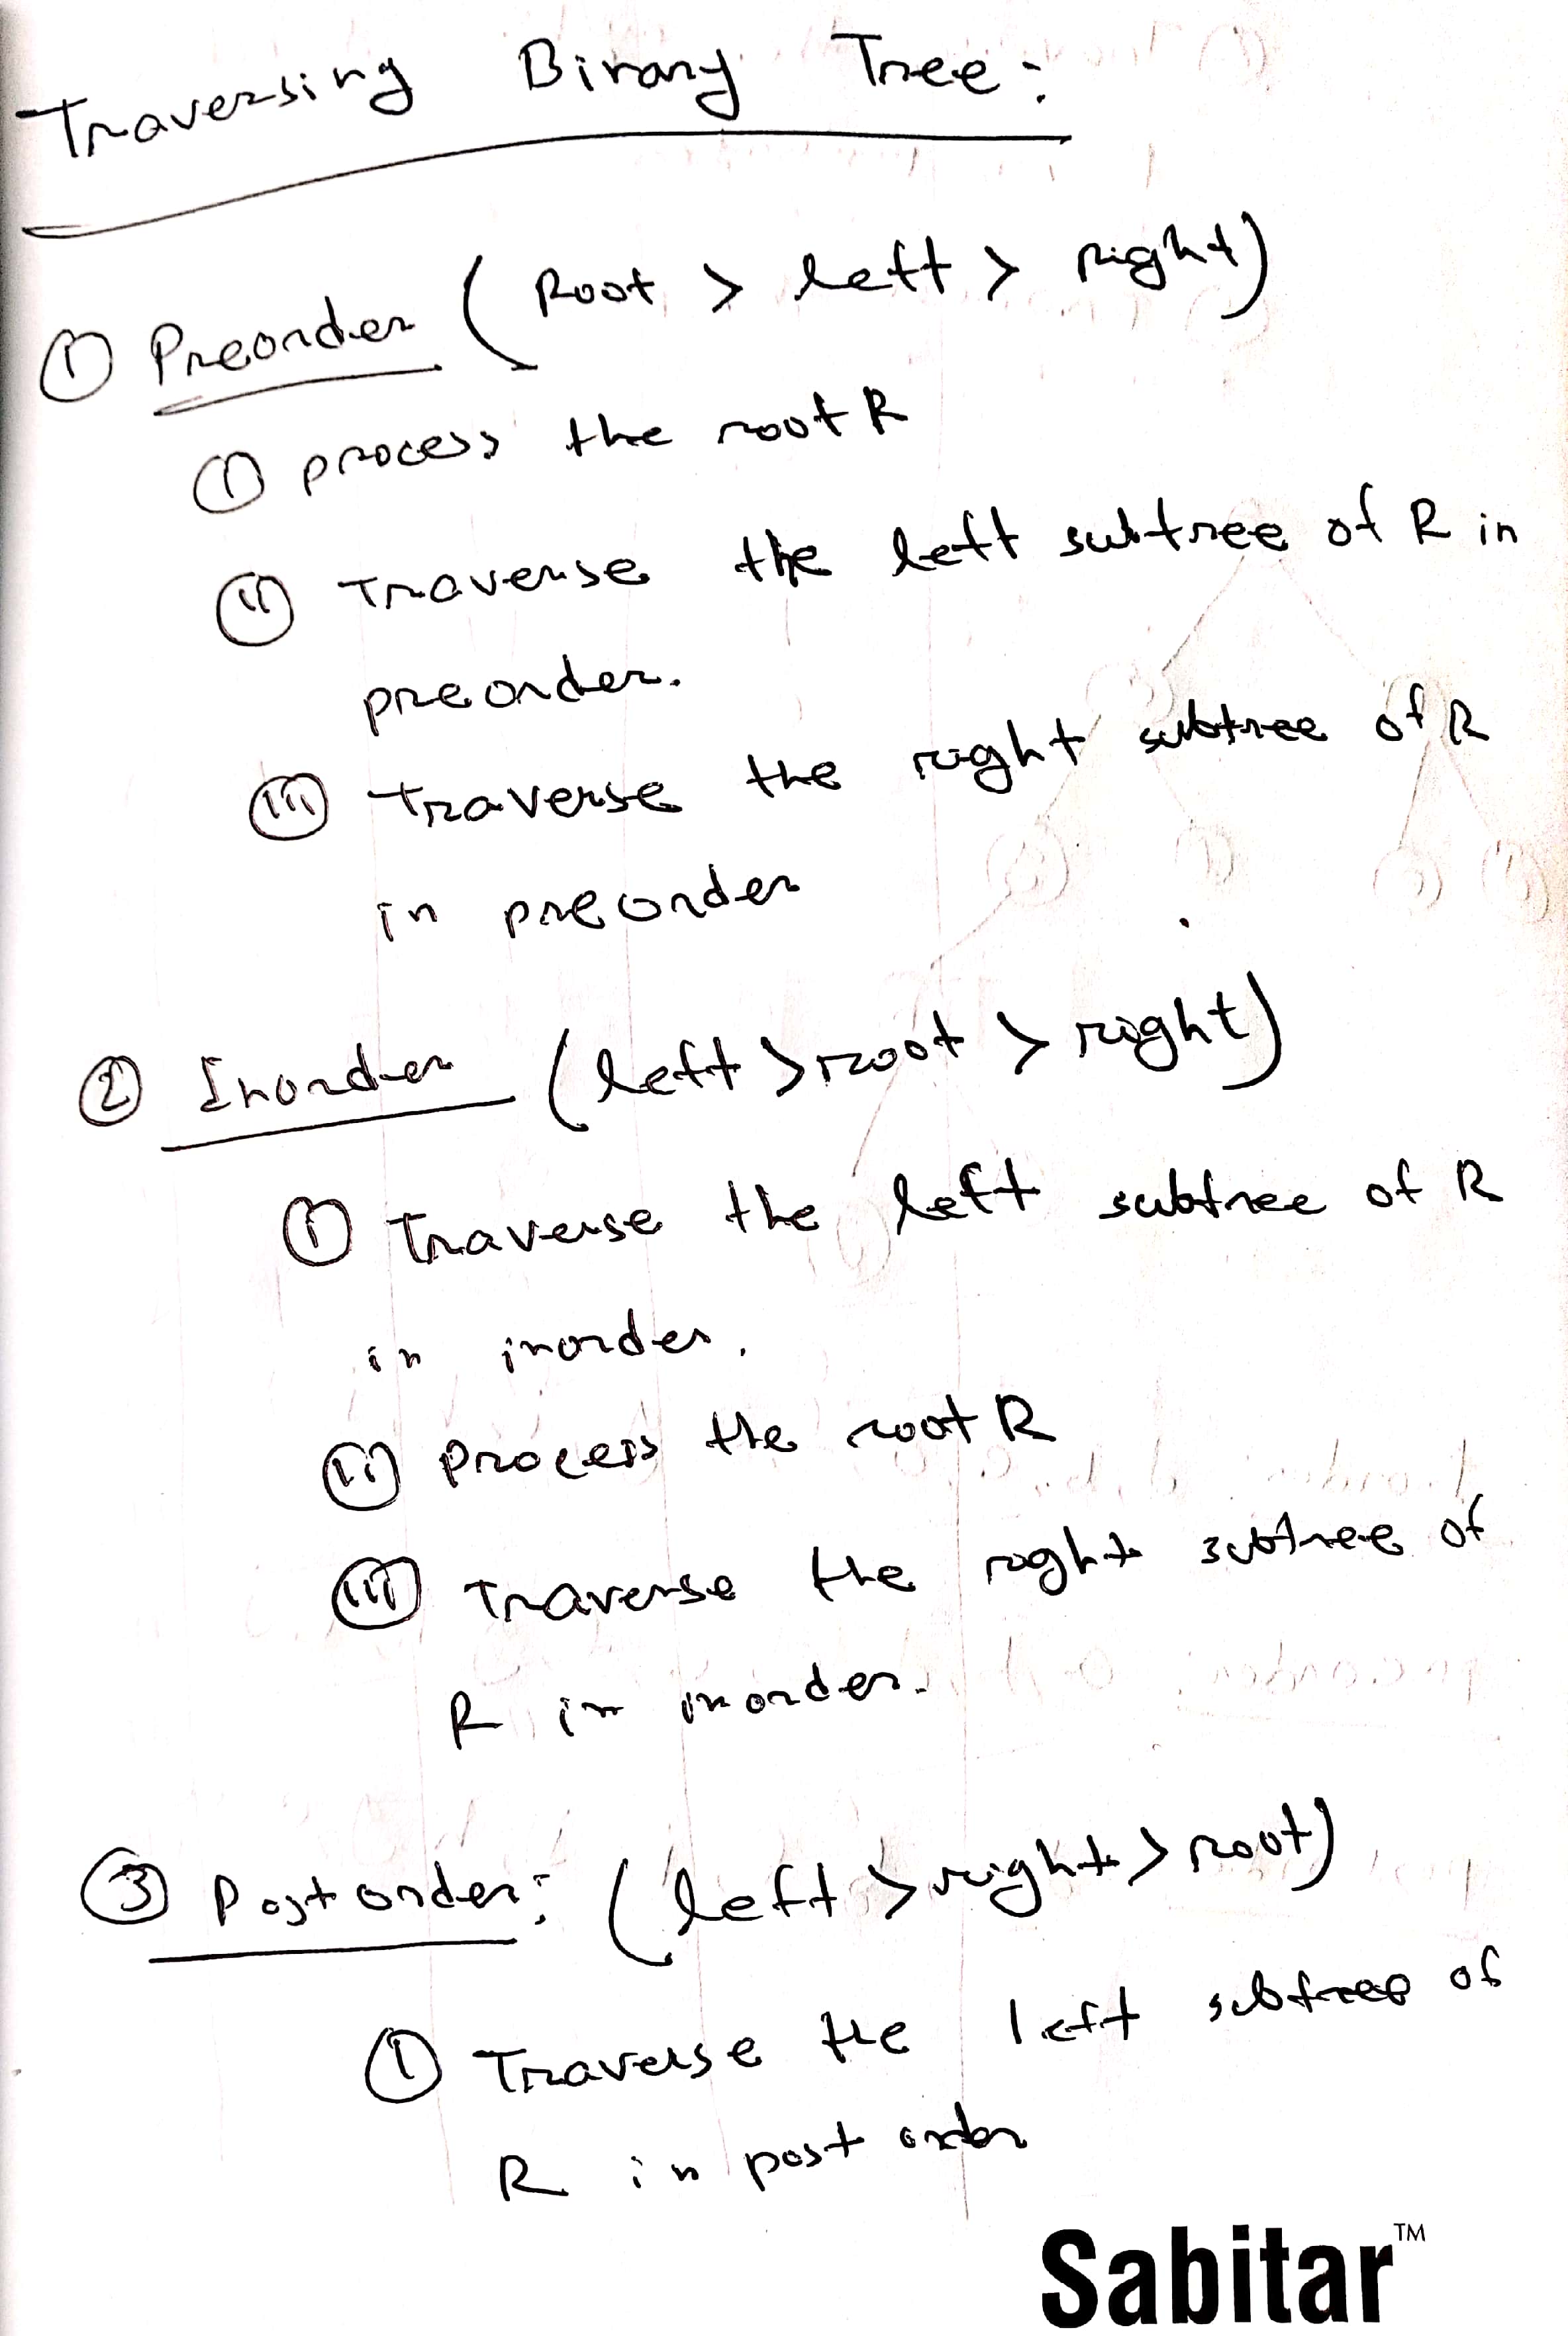 Traversing Binary Tree:
① Preorder (Root > left > right)
ⓘ process the root R
ⓘⓘ Traverse the left subtree of R in
preorder.
ⓘⓘⓘ traverse the right subtree of R
in preorder
② Inorder (left > root > right)
ⓘ Traverse the left subtree of R
in inorder.
ⓘⓘ Process the root R
ⓘⓘⓘ Traverse the right subtree of
R in inorder.
③ Post order: (left > right > root)
ⓘ Traverse the left subtree of
R in post order
Sabitar™